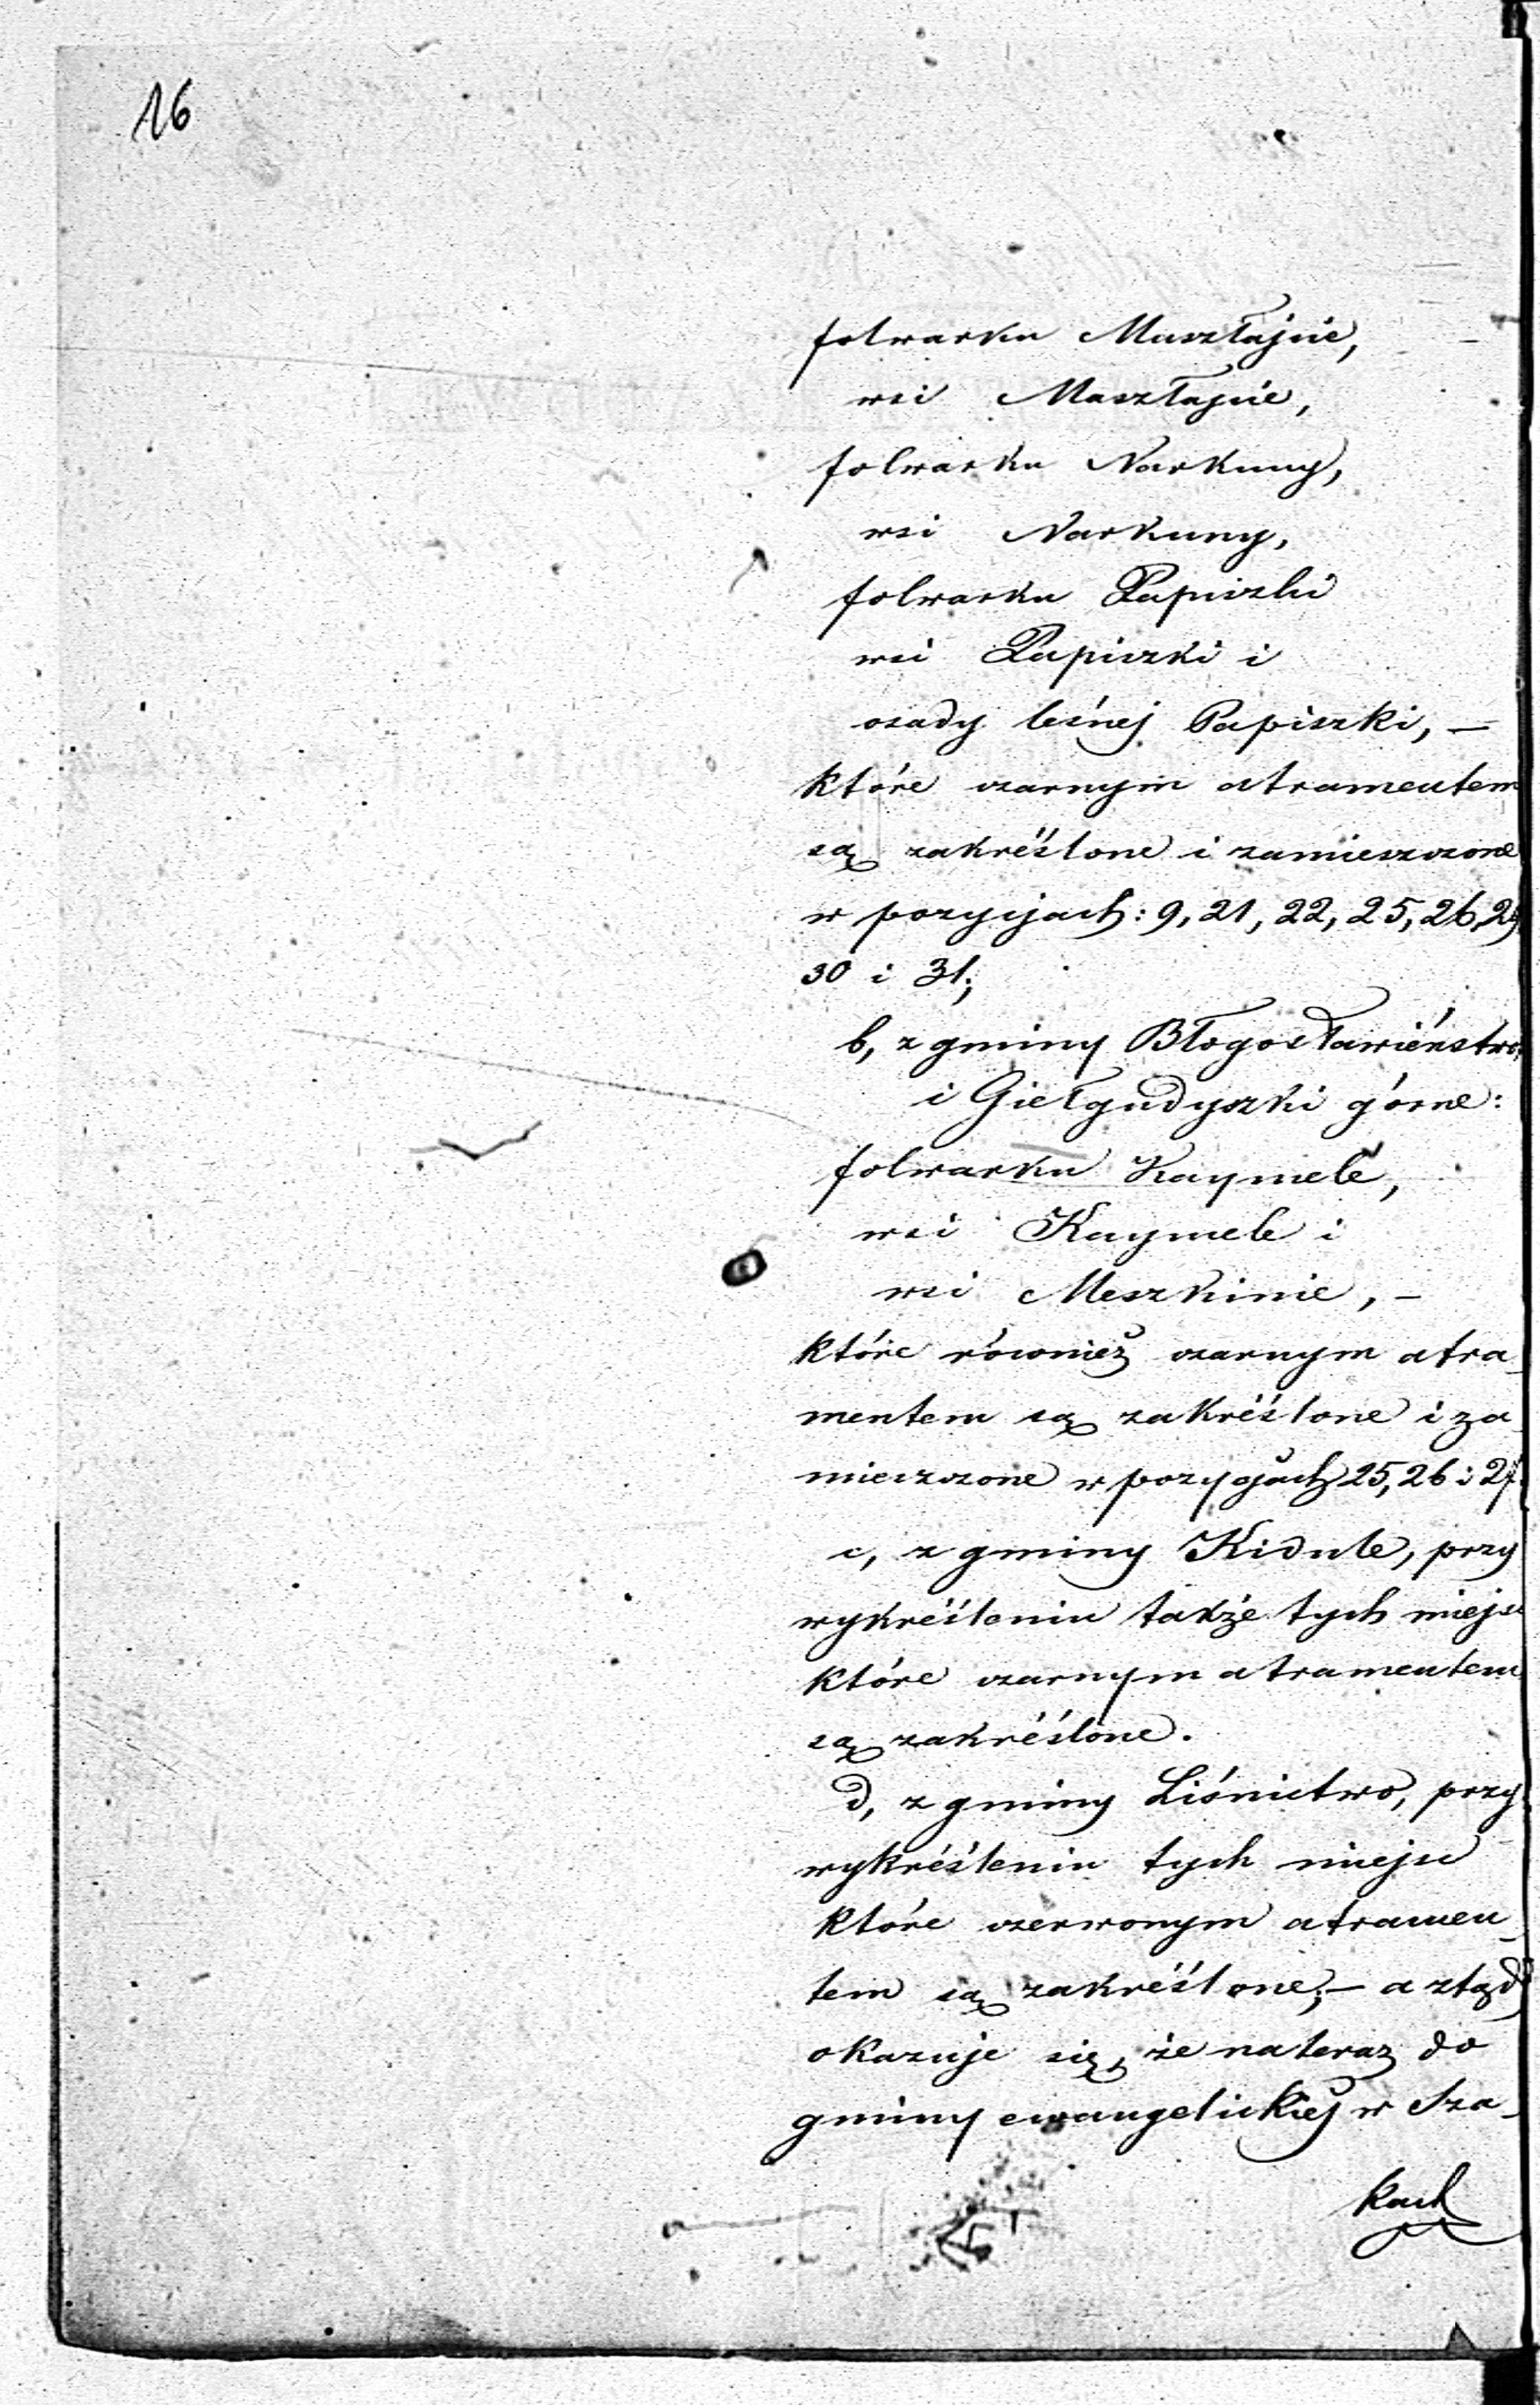 16
folwarku Maszłajcie,
wsi Maszłajcie,
folwarku Narkuny,
wsi Narkuny,
folwarku Papiszki
wsi Papiszki i
osady leśnej Papiszki, —
które czarnym atramentem
są zakréślone i zamieszczone
w pozycjach: 9, 21, 22, 25, 26, 29
30 i 31;
b, z gminy Błogosławieństwo,
i Giełgudyszki górne:
folwarku Kaymele,
wsi Kaymele i
wsi Meszkinie, —
które również czarnym atra-
mentem są zakréślone i za-
mieszczone w pozycjach 25, 26 i 27.
c, z gminy Kidule, przy
wykréśleniu także tych miejsc
które czarnym atramentem
są zakréślone.
d, z gminy Liśnictwo, przy
wykréśleniu tych miejsc
które czerwonym atramen-
tem są zakréślone; — a ztąd
okazuje się, że na teraz do
gminy ewangelickiej w Sza-
kach